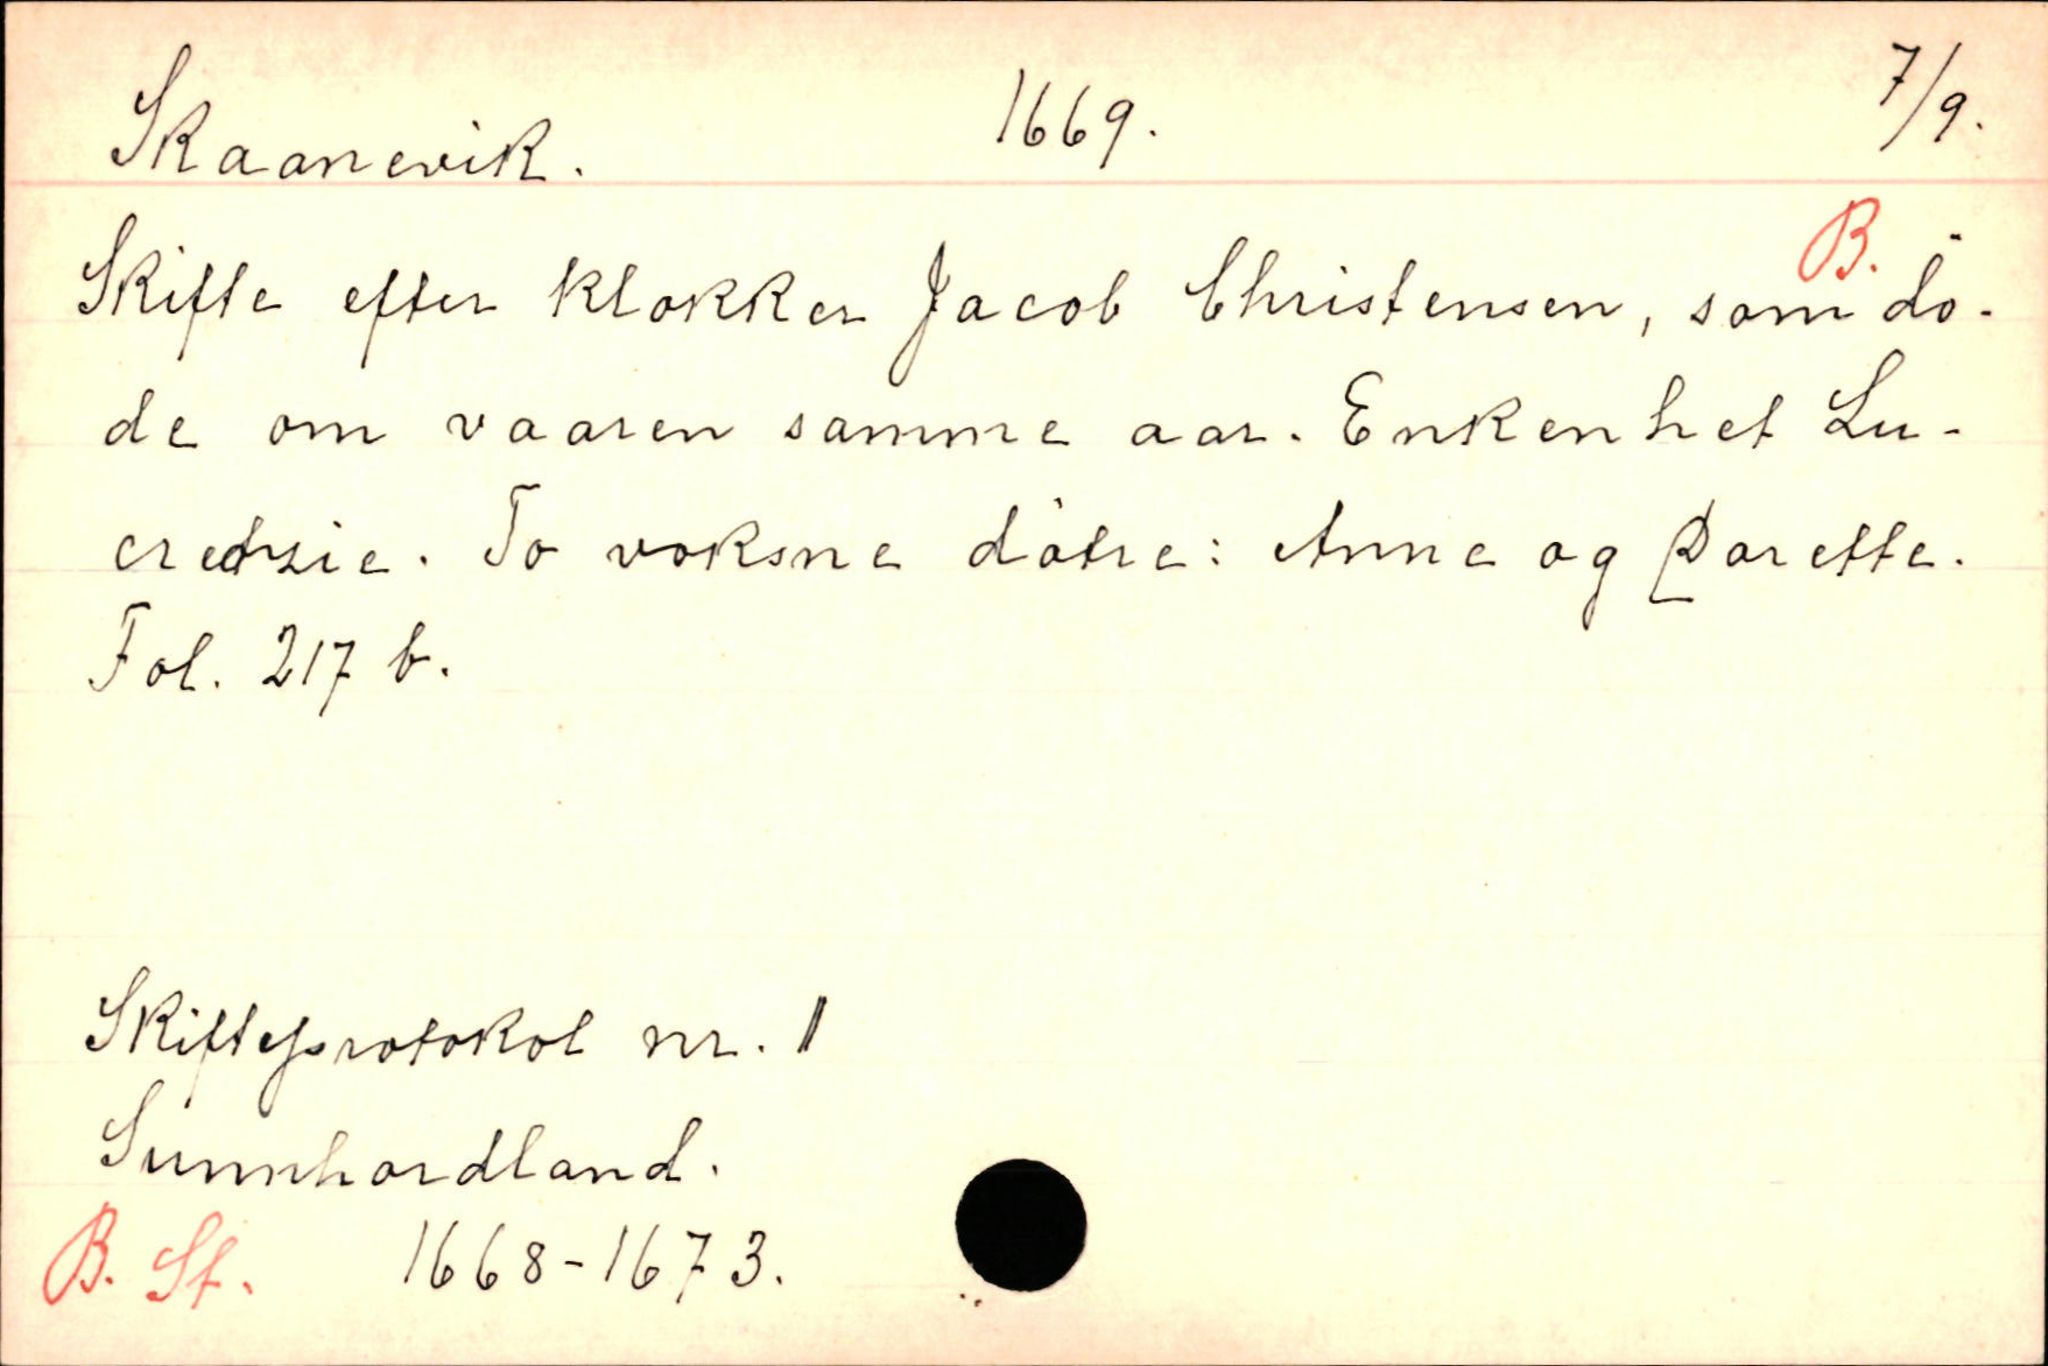 Skaanevik. 1669. 7/9.
B.
Skifte efter klokker Jacob Christensen, som dö-
de om vaaren samme aar. Enken het Lu-
cretzie. To voksne døtre: Anne og Dorette.
Fol. 217 b.
Skifteprotokol nr. 1
Sunnhordland.
B. St. 1668-1673.